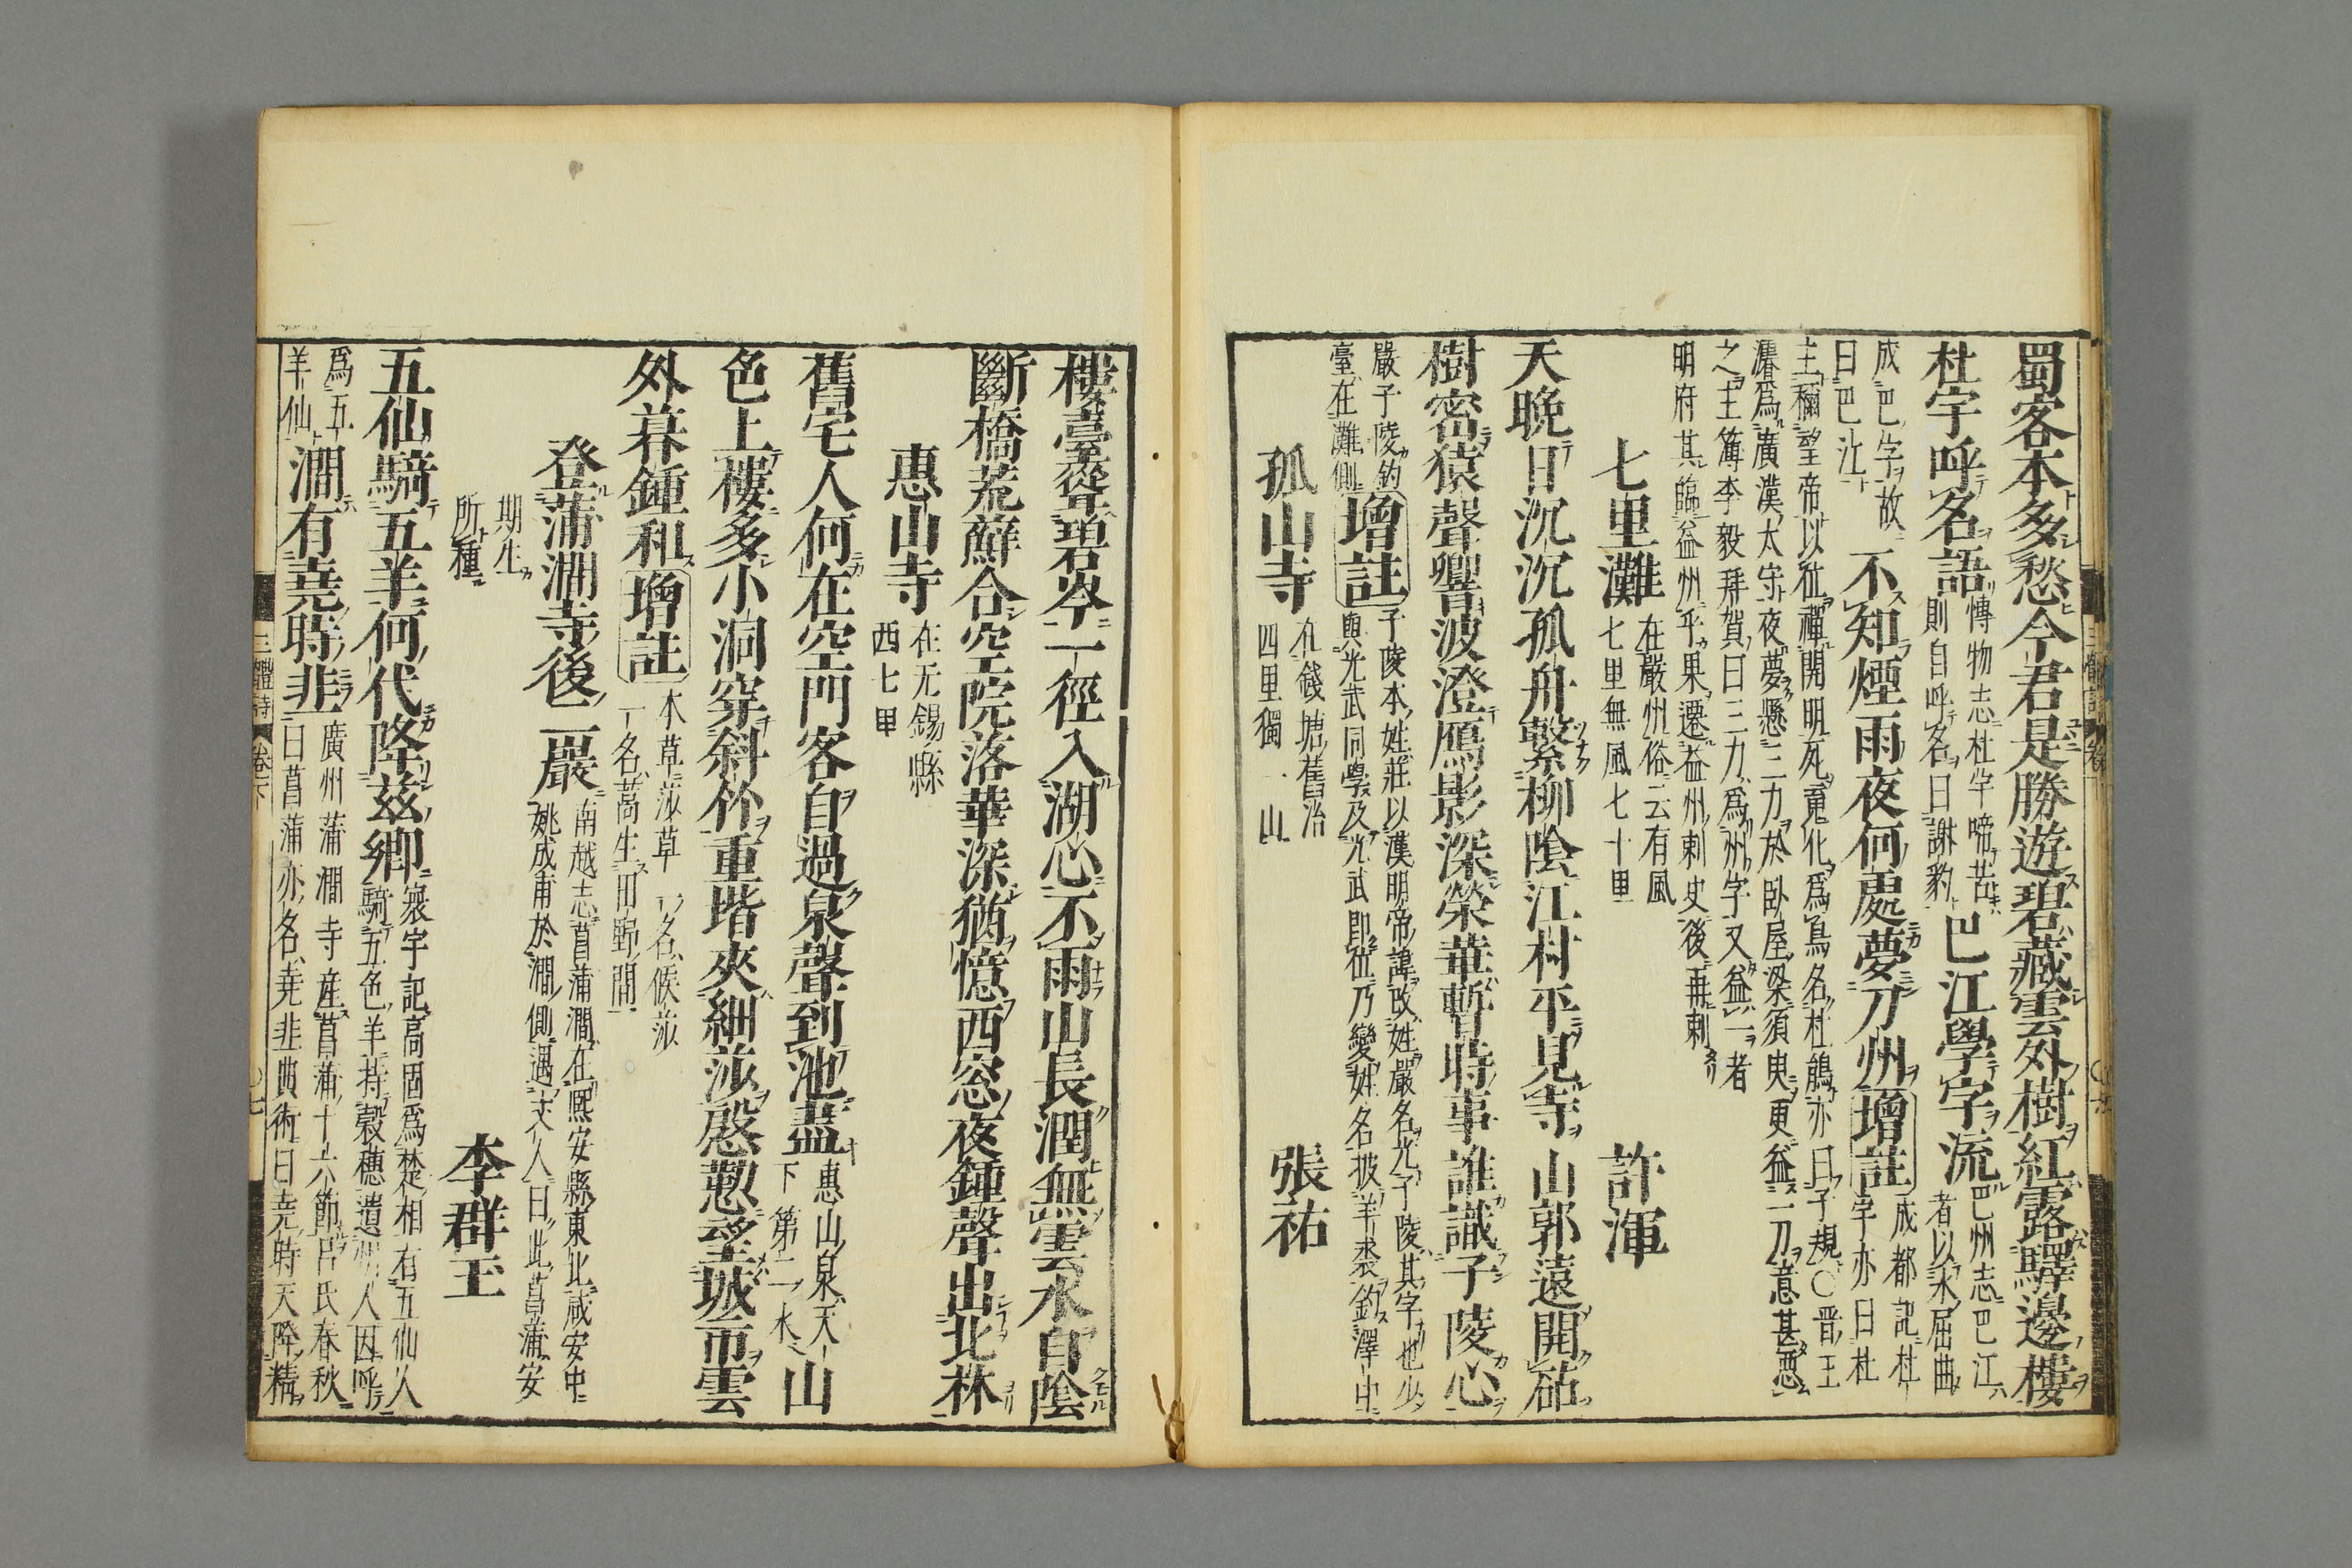 蜀客本多愁今君是勝遊碧藏雲外樹紅露驛邊樓
杜宇呼名語
博物志杜宇啼苦
則自呼名曰謝豹
巴江學字流
巴州志巴江
者以水屈曲
成巴字故
曰巴江
不知煙雨夜何處夢刀州
增註
成都記杜
宇亦曰杜
主稱望帝以位禪開明死魂化爲鳥名杜鵑亦曰子規○晋王
濬爲廣漢太守夜夢懸三刀於臥屋梁須臾更益一刀意甚惡
之主簿李毅拜賀曰三刀爲州字又益一者
明府其臨益州乎果遷益州刺史後再刺
七里灘
在嚴州俗云有風
七里無風七十里
許渾
天晚日沉沉孤舟繫柳陰江村平見寺山郭遠聞砧
樹密猿聲響波澄鴈影深榮華暫時事誰識子陵心
嚴子陵釣
臺在灘側
增註
子陵本姓莊以漢明帝諱改姓嚴名光子陵其字也少
與光武同學及光武即位乃變姓名披羊裘釣澤中
孤山寺
在錢塘舊治
四里獨一山
張祐
樓臺聳碧岑一徑入湖心不雨山長潤無雲水自陰
斷橋荒蘚合空院落華深猶憶西窓夜鍾聲出北林
惠山寺
在无錫縣
西七里
舊宅人何在空門客自過泉聲到池盡
惠山泉天
下第二水
山
色上樓多小洞穿斜竹重堦夾細莎慇懃望城市雲
外暮鍾和
增註
本草莎草一名候莎
一名蒿生田野間
登蒲澗寺後二巖
南越志菖蒲澗在熈安縣東北咸安中
姚成甫於澗側遇丈人曰此菖蒲安
期生
所種
李群玉
五仙騎五羊何代降茲鄉
寰宇記高固爲楚相有五仙人
騎五色羊持穀穗遺州人因呼
爲五
羊仙
澗有堯時韭
廣州蒲澗寺産菖蒲十六節吕氏春秋
曰菖蒲亦名堯韭典術曰堯時天降精
三體詩 卷下